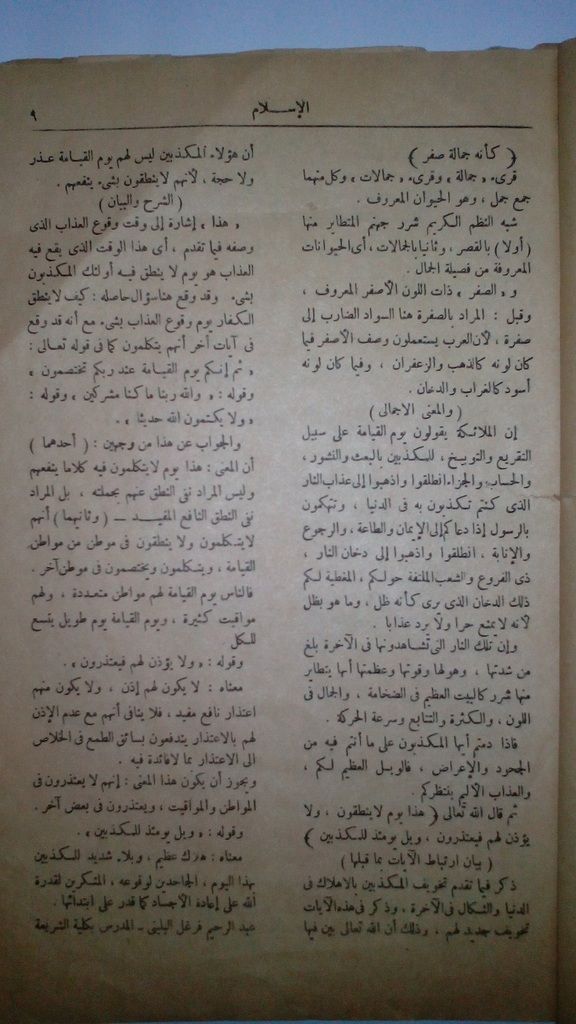 الإســـلام
٩
﴿ كأنه جمالة صفر ﴾
قرىء « جمالة » وقرىء « جمالات » وكل منهما
جمع جمل ، وهو الحيوان المعروف .
شبه النظم الكريم شرر جهنم المتطاير منها
( أولا ) بالقصر ، وثانيا بالجمالات ، أى الحيوانات
المعروفة من فصيلة الجمال .
و « الصفر » ذات اللون الأصفر المعروف ،
وقيل : المراد بالصفرة هنا السواد الضارب إلى
صفرة ، لأن العرب يستعملون وصف الأصفر فيما
كان لونه كالذهب والزعفران ، وفيما كان لونه
أسود كالغراب والدخان .
( والمعنى الاجمالى )
إن الملائكة يقولون يوم القيامة على سبيل
التقريع والتوبيخ ، للمكذبين بالبعث والنشور ،
والحساب والجزاء انطلقوا واذهبوا إلى عذاب النار
الذى كنتم تكذبون به فى الدنيا ، وتتهكمون
بالرسول إذا دعاكم إلى الإيمان والطاعة ، والرجوع
والإنابة ، انطلقوا واذهبوا إلى دخان النار ،
ذى الفروع والشعب الملتفة حولكم ، المغطية لكم
ذلك الدخان الذى يرى كأنه ظل ، وما هو بظل
لأنه لا يمنع حرا ولا يرد عذابا .
وإن تلك النار التى تشاهدونها فى الآخرة بلغ
من شدتها ، وهولها وقوتها وعظمتها أنها يتطاير
منها شرر كالبيت العظيم فى الضخامة ، والجمال فى
اللون ، والكثرة والتتابع وسرعة الحركة .
فاذا دمتم أيها المكذبون على ما أنتم فيه من
الجحود والإعراض ، فالويل العظيم لكم ،
والعذاب الأليم ينتظركم .
ثم قال الله تعالى ﴿ هذا يوم لا ينطقون ، ولا
يؤذن لهم فيعتذرون ، ويل يومئذ للمكذبين ﴾
( بيان ارتباط الآيات بما قبلها )
ذكر فيما تقدم تخويف المكذبين بالاهلاك فى
الدنيا والنكال فى الآخرة ، وذكر فى هذه الآيات
تخويف جديد لهم ، وذلك أن الله تعالى بين فيها
أن هؤلاء المكذبين ليس لهم يوم القيامة عذر
ولا حجة ، لأنهم لا ينطقون بشىء ينفعهم .
( الشرح والبيان )
« هذا » إشارة إلى وقت وقوع العذاب الذى
وصفه فيما تقدم ، أى هذا الوقت الذى يقع فيه
العذاب هو يوم لا ينطق فيه أولئك المكذبون
بشىء . وقد وقع هنا سؤال حاصله : كيف لا ينطق
الكفار يوم وقوع العذاب بشىء مع أنه قد وقع
فى آيات أخر أنهم يتكلمون كما فى قوله تعالى :
« ثم إنكم يوم القيامة عند ربكم تختصمون »
وقوله : « والله ربنا ما كنا مشركين » وقوله :
« ولا يكتمون الله حديثا » .
والجواب عن هذا من وجهين : ( أحدهما )
أن المعنى : هذا يوم لا يتكلمون فيه كلاما ينفعهم
وليس المراد نفى النطق عنهم بجملته ، بل المراد
نفى النطق النافع المفيد — ( وثانيهما ) أنهم
لا يتكلمون ولا ينطقون فى موطن من مواطن
القيامة ، ويتكلمون ويختصمون فى موطن آخر .
فالناس يوم القيامة لهم مواطن متعددة ، ولهم
مواقيت كثيرة ، ويوم القيامة يوم طويل يتسع
للكل
وقوله : « ولا يؤذن لهم فيعتذرون » .
معناه : لا يكون لهم إذن ، ولا يكون منهم
اعتذار نافع مفيد ، فلا ينافى أنهم مع عدم الإذن
لهم بالاعتذار يندفعون بسائق الطمع فى الخلاص
الى الاعتذار بما لا فائدة فيه .
ويجوز أن يكون هذا المعنى : إنهم لا يعتذرون فى
المواطن والمواقيت ، ويعتذرون فى بعض آخر .
وقوله : « ويل يومئذ للمكذبين » .
معناه : هلاك عظيم ، وبلاء شديد للمكذبين
بهذا اليوم ، الجاحدين لوقوعه ، المنكرين لقدرة
الله على إعادة الأجساد كما قدر على ابتدائها .
عبد الرحيم فرغل البلينى – المدرس بكلية الشريعة